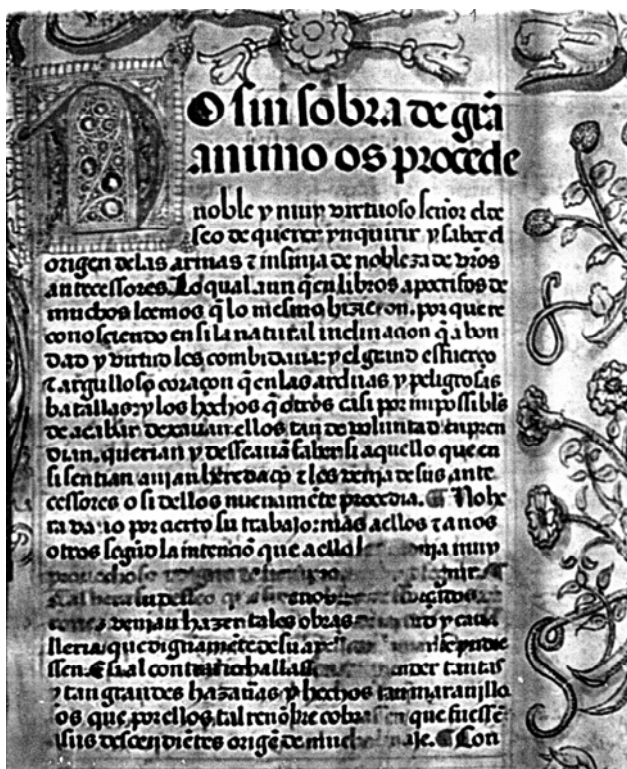 1
No sin sobra de grā
animo os procede
noble y muy virtuoso señor el de
seo de querer ynquirir y saber el
origen de las armas ⁊ insinia de nobleza de vr̄os
antecessores. Lo qual aun q̄ en libros apocrifos de
muchos leemos q̄ lo mesmo hizieron. por que re
conosciendo en si la natural inclinacion q̄ a bon
dad y virtud los combidaua: y el grand esfuerço
⁊ argulloso coraçon q̄ en las arduas y peligrosas
batallas: y los hechos q̄ otros casi por impossibles
de acabar dexauan. ellos tan de voluntad enpren
dian. querian y desseauā saber si aquello que en
si sentian auian heredado ⁊ los venia de sus ante
cessores o si dellos nueuamēte procedia. ¶ No he
rada por cierto su trabajo: mas a ellos ⁊ a nos
otros segūd la intenciō que a ello muy
prouechoso
su desseo
venian hazen tales obras de y caua
lleria que dignamēte de su
ssen. E si al contrario hallass tantas
y tan grandes hazañas y hechos tan marauillo
os que por ellos tal renōbre cobrassen que fuessē
a sus descendiētes origē de mucho ¶ Con